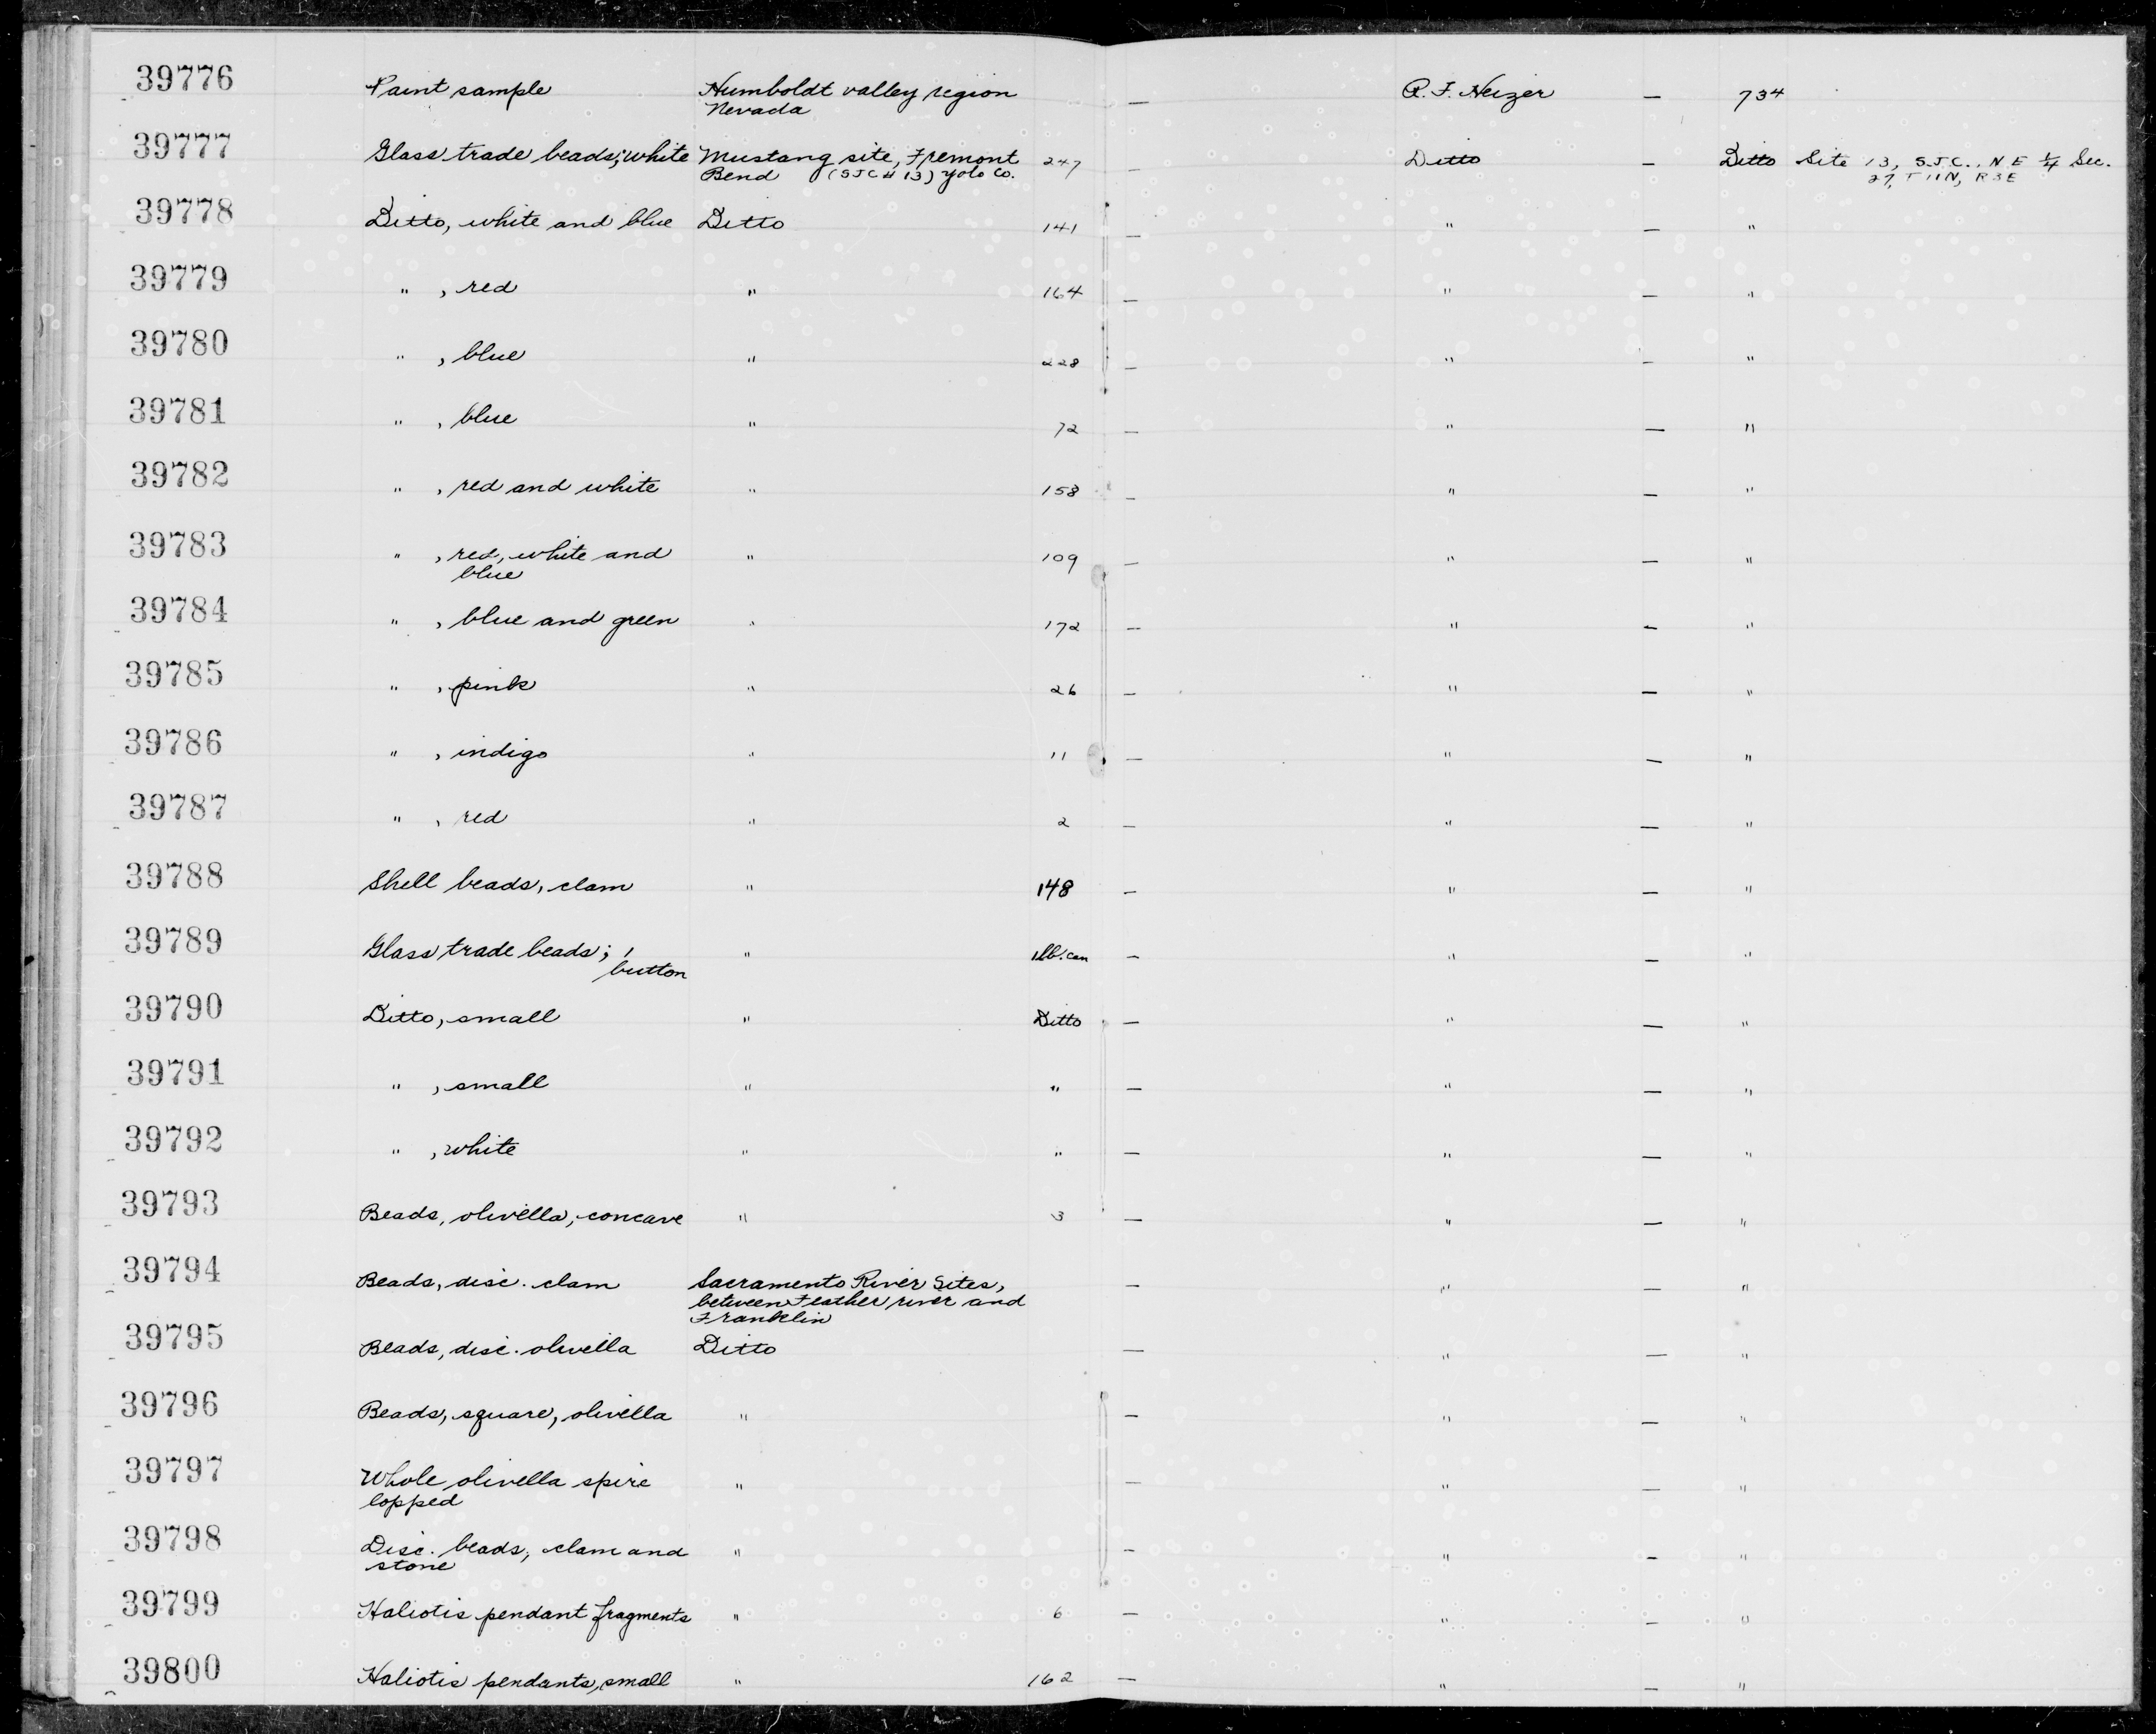 39776 Paint sample Humboldt valley region — R. F. Heizer — 734
Nevada
39777 Glass trade beads; white Mustang site, Fremont 247 — Ditto — Ditto Site 13, SJC., NE 1/4 Sec.
Bend (SJC # 13) Yolo Co. 27, T 11N, R3E
39778 Ditto, white and blue Ditto 141 — " — "
39779 " , red " 164 — " — "
39780 " , blue " 228 — " — "
39781 " , blue " 72 — " — "
39782 " , red and white " 158 — " — "
39783 " , red, white and " 109 — " — "
blue
39784 " , blue and green " 172 — " — "
39785 " , pink " 26 — " — "
39786 " , indigo " 11 — " — "
39787 " , red " 2 — " — "
39788 Shell beads, clam " 148 — " — "
39789 Glass trade beads; 1 " 1lb. can — " — "
button
39790 Ditto, small " Ditto — " — "
39791 " , small " " — " — "
39792 " , white " " — " — "
39793 Beads, olivella, concave " 3 — " — "
39794 Beads, disc. clam Sacramento River Sites, — " — "
between Feather river and
Franklin
39795 Beads, disc. olivella Ditto — " — "
39796 Beads, square, olivella " — " — "
39797 Whole olivella spire " — " — "
lopped
39798 Disc. beads, clam and " — " — "
stone
39799 Haliotis pendant fragments " 6 — " — "
39800 Haliotis pendants, small " 162 — " — "